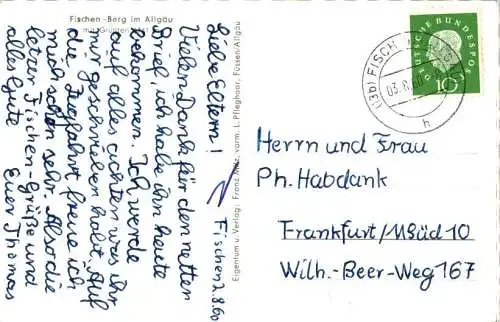 Fischen-Berg im Allgäu
mit Grünten
Fischen 2.8.60
Liebe Eltern!
Vielen Dank für den netten
Brief, ich habe ihn heute
bekommen. Ich werde
auf alles achten was ihr
mir geschrieben habt. Auf
die Zugfahrt freue ich
mich schon sehr. Also die
letzen Fischen-Grüße und
alles Gute
Euer Thomas
Eigentum u. Verlag: Franz Milz, vorm. L. Pfleghaar, Füssen/Allgäu
DEUTSCHE BUNDESPOST
10
(13b) FISCH
03.8.60
h
Herrn und Frau
Ph. Habdank
Frankfurt/M Süd 10
Wilh.-Beer-Weg 167